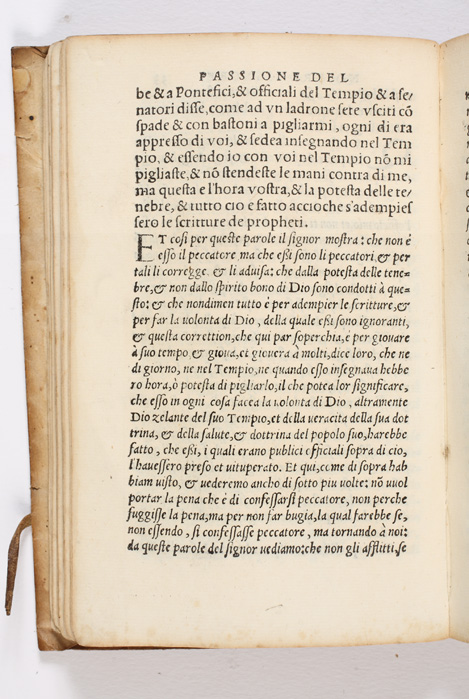 PASSIONE DEL
be & a Pontefici, & officiali del Tempio & a se/
natori disse, come ad vn ladrone sete vsciti cō
spade & con bastoni a pigliarmi, ogni di era
appresso di voi, & sedea insegnando nel Tem
pio, & essendo io con voi nel Tempio nō mi
pigliaste, & nō stendeste le mani contra di me,
ma questa e l'hora vostra, & la potesta delle te/
nebre, & tutto cio e fatto accioche s'adempies
sero le scritture de propheti.
ET cosi per queste parole il signor mostra: che non è
esso il peccatore ma che essi sono li peccatori, & per
tali li corregge & li aduisa: che dalla potesta delle tene/
bre, & non dallo spirito bono di Dio sono condotti à que/
sto: & che nondimen tutto è per adempier le scritture, &
per far la uolonta di Dio, della quale essi sono ignoranti,
& questa correttion, che qui par soperchia, è per giouare
à suo tempo & gioua, et giouera à molti, dice loro, che ne
di giorno, ne nel Tempio, ne quando esso insegnaua hebbe
ro hora, ò potesta di pigliarlo, il che potea lor significare,
che esso in ogni cosa facea la uolonta di Dio, altramente
Dio zelante del suo Tempio, et della ueracita della sua dot
trina, & della salute, & dottrina del popolo suo, harebbe
fatto, che essi, i quali erano publici officiali sopra di cio,
l'hauessero preso et uituperato. Et qui, come di sopra hab
biam uisto, & uederemo ancho di sotto piu uolte: nō uuol
portar la pena che è di confessarsi peccatore, non perche
fuggisse la pena, ma per non far bugia, la qual farebbe se,
non essendo, si confessasse peccatore, ma tornando à noi:
da queste parole del signor uediamo: che non gli afflitti, se